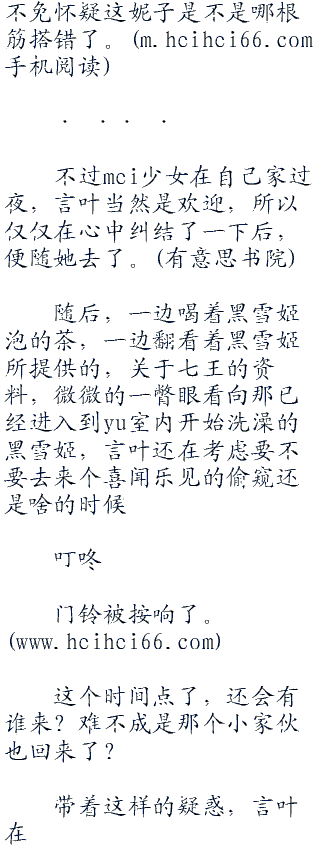 不免怀疑这妮子是不是哪根
筋搭错了。(m.hcihci66.com
手机阅读)
. . . .
不过mci少女在自己家过
夜，言叶当然是欢迎，所以
仅仅在心中纠结了一下后，
便随她去了。(有意思书院)
随后，一边喝着黑雪姬
泡的茶，一边翻看着黑雪姬
所提供的，关于七王的资
料，微微的一瞥眼看向那已
经进入到yu室内开始洗澡的
黑雪姬，言叶还在考虑要不
要去来个喜闻乐见的偷窥还
是啥的时候
叮咚
门铃被按响了。
(www.hcihci66.com)
这个时间点了，还会有
谁来？难不成是那个小家伙
也回来了？
带着这样的疑惑，言叶
在